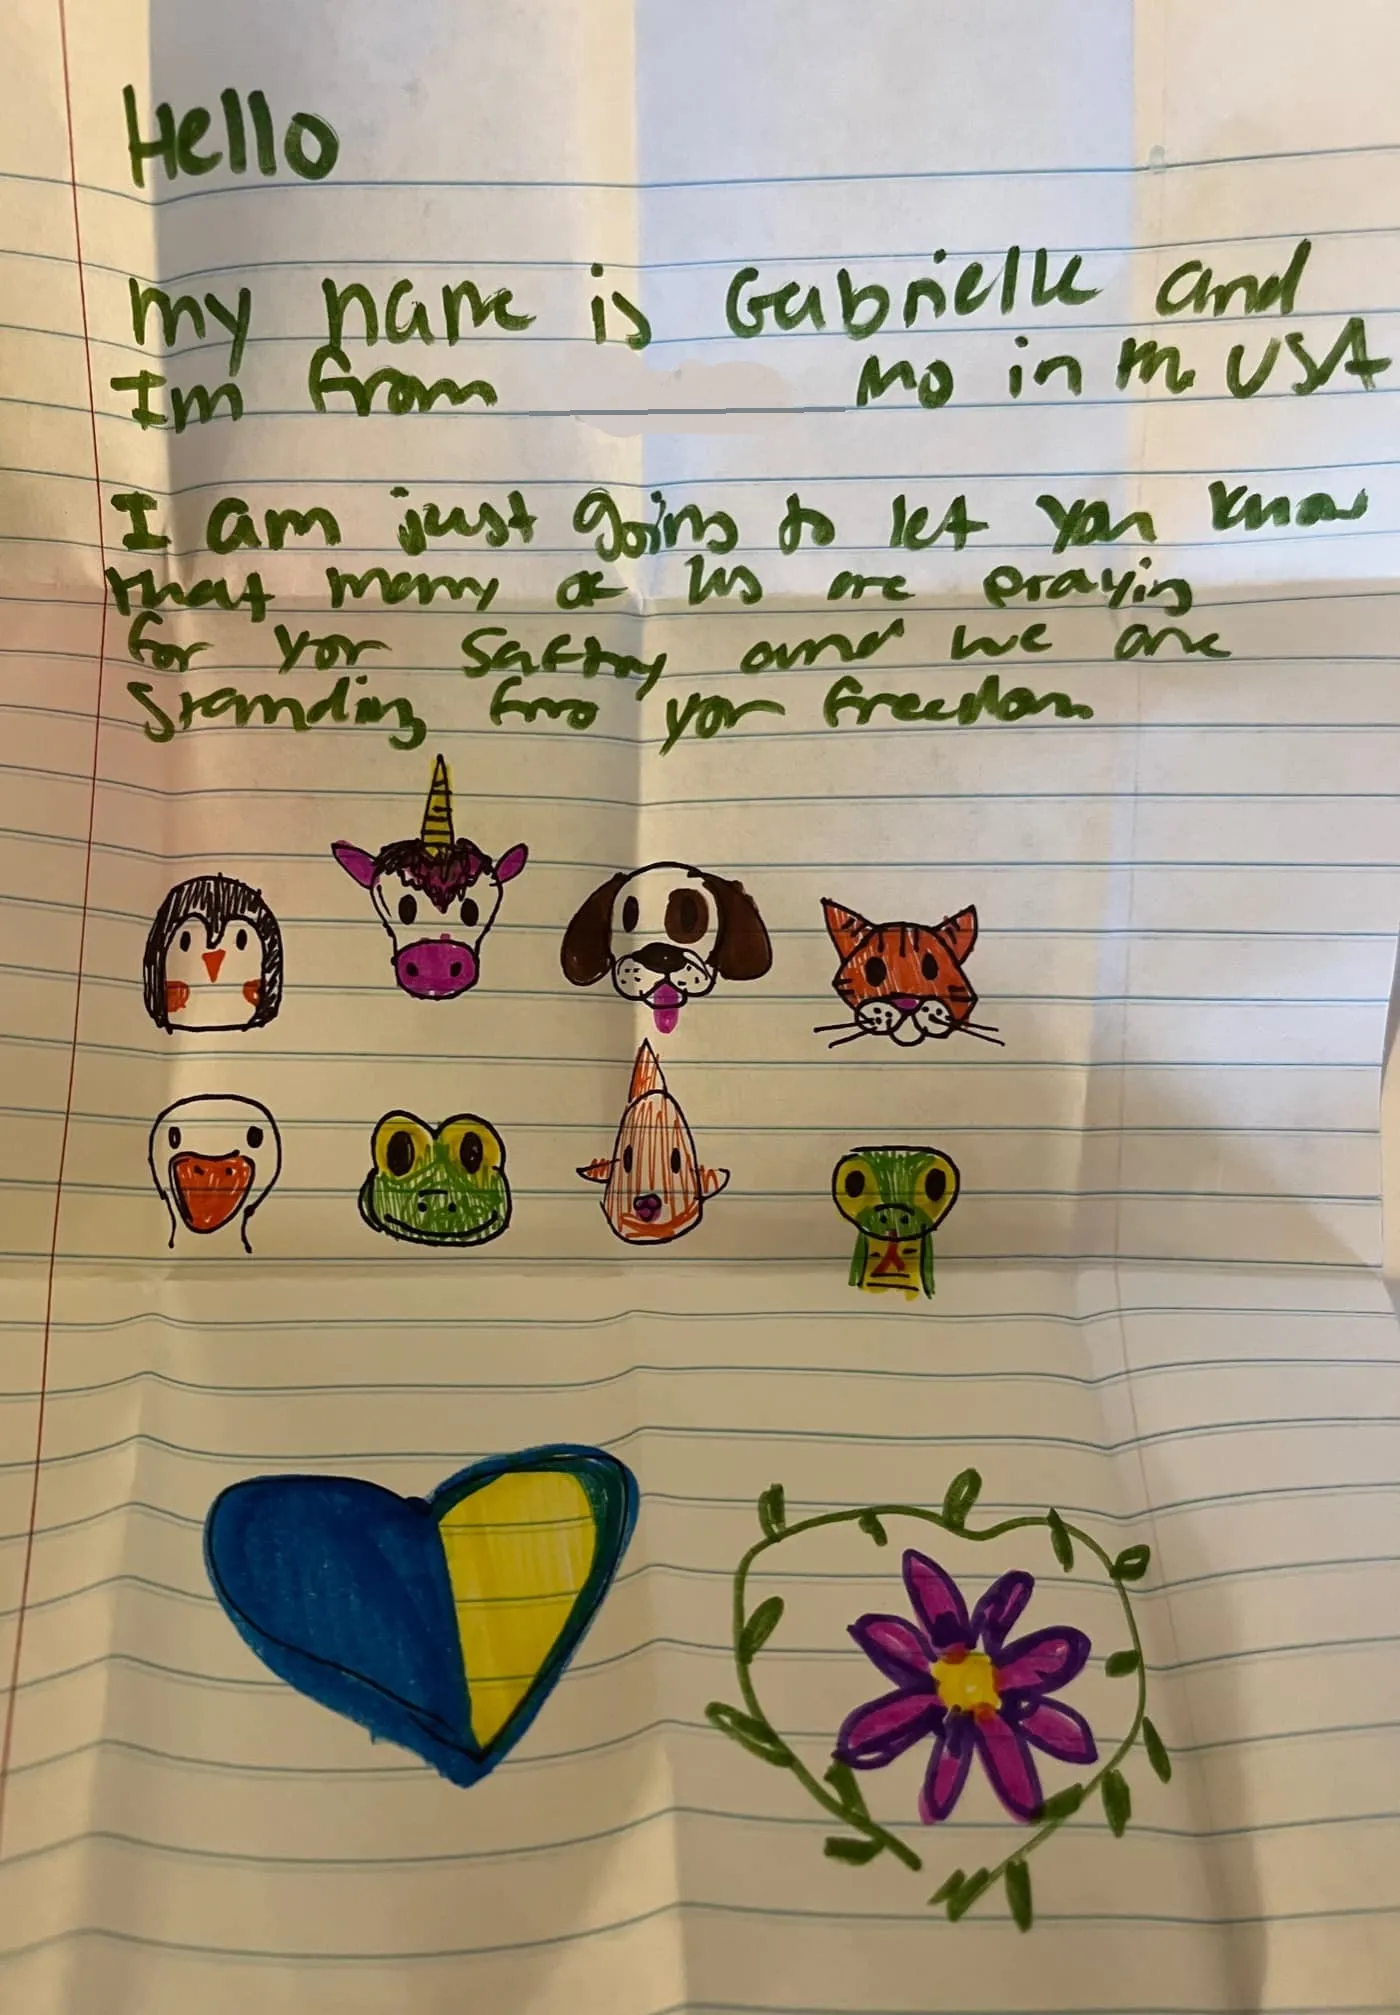 Hello
my name is Gabrielle and
Im from MO in the USA
I am just going to let you know
that many of us are praying
for yor saftey and we are
standing for yor freedom